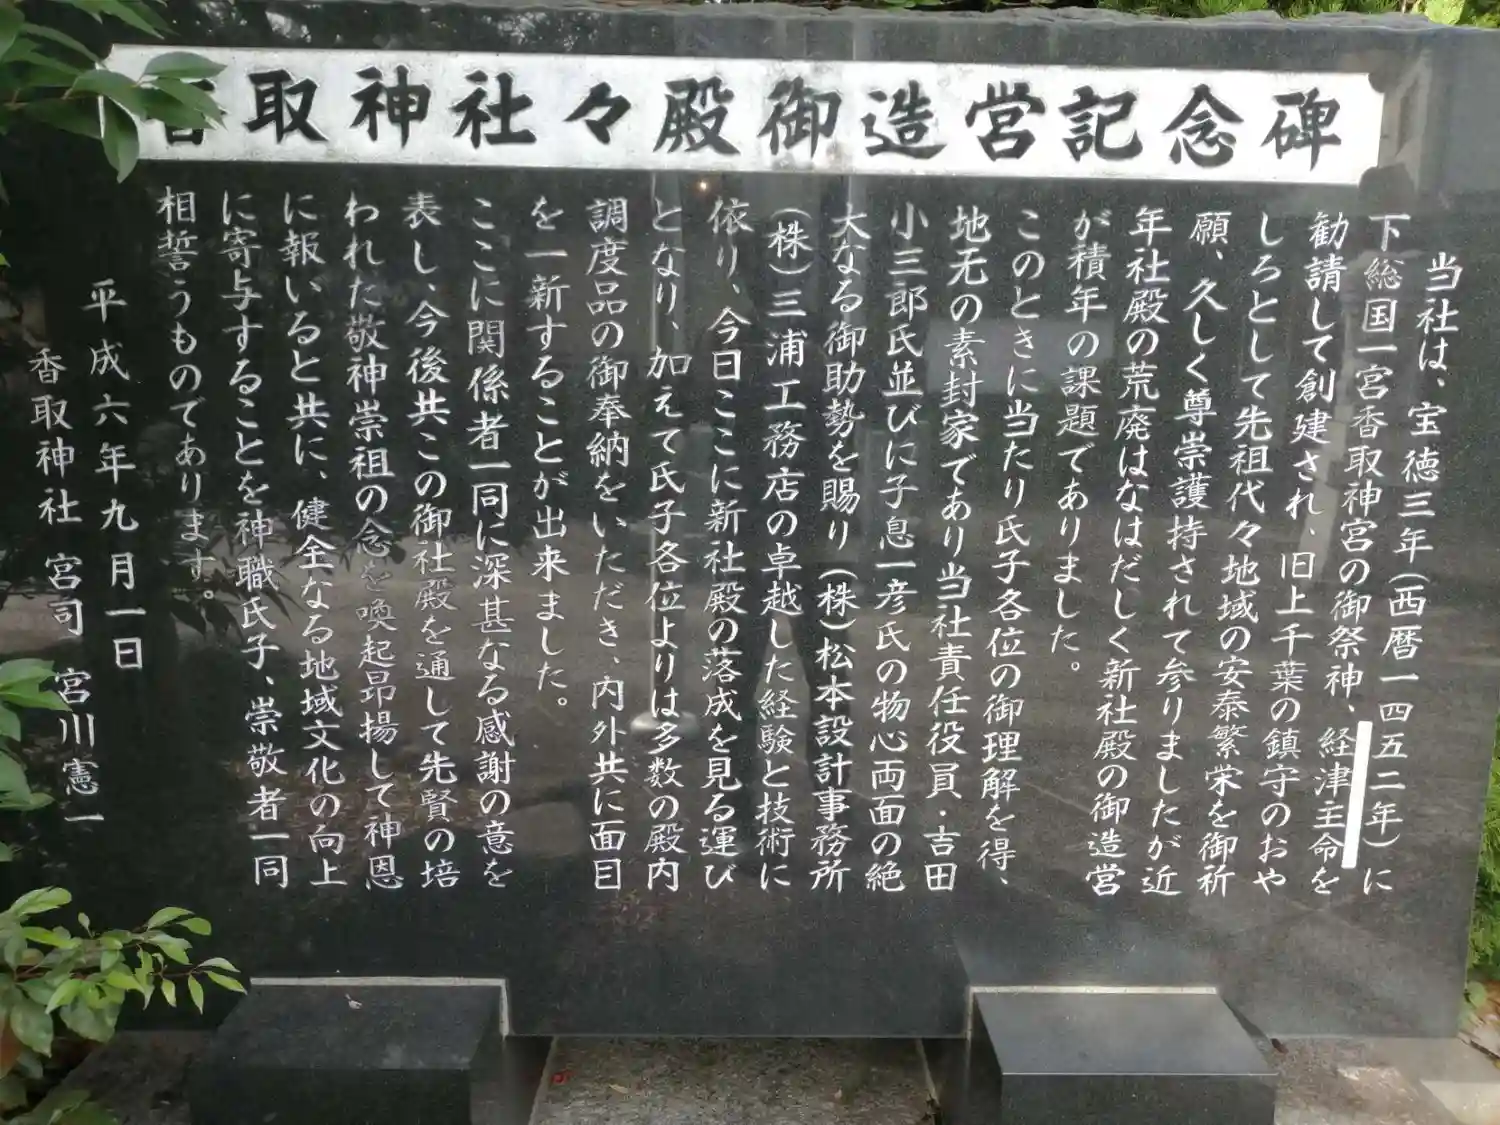 香取神社々殿御造営記念碑
当社は、宝徳三年(西暦一四五二年)に
下総国一宮香取神宮の御祭神、経津主命を
勧請して創建され、旧上千葉の鎮守のおや
しろとして先祖代々地域の安泰繁栄を御祈
願、久しく尊崇護持されて参りましたが近
年社殿の荒廃はなはだしく新社殿の御造営
が積年の課題でありました。
このときに当たり氏子各位の御理解を得、
地元の素封家であり当社責任役員・吉田
小三郎氏並びに子息一彦氏の物心両面の絶
大なる御助勢を賜り(株)松本設計事務所
(株)三浦工務店の卓越した経験と技術に
依り、今日ここに新社殿の落成を見る運び
となり、加えて氏子各位よりは多数の殿内
調度品の御奉納をいただき、内外共に面目
を一新することが出来ました。
ここに関係者一同に深甚なる感謝の意を
表し、今後共この御社殿を通して先賢の培
われた敬神崇祖の念を喚起昂揚して神恩
に報いると共に、健全なる地域文化の向上
に寄与することを神職氏子、崇敬者一同
相誓うものであります。
平成六年九月一日
香取神社 宮司 宮川憲一